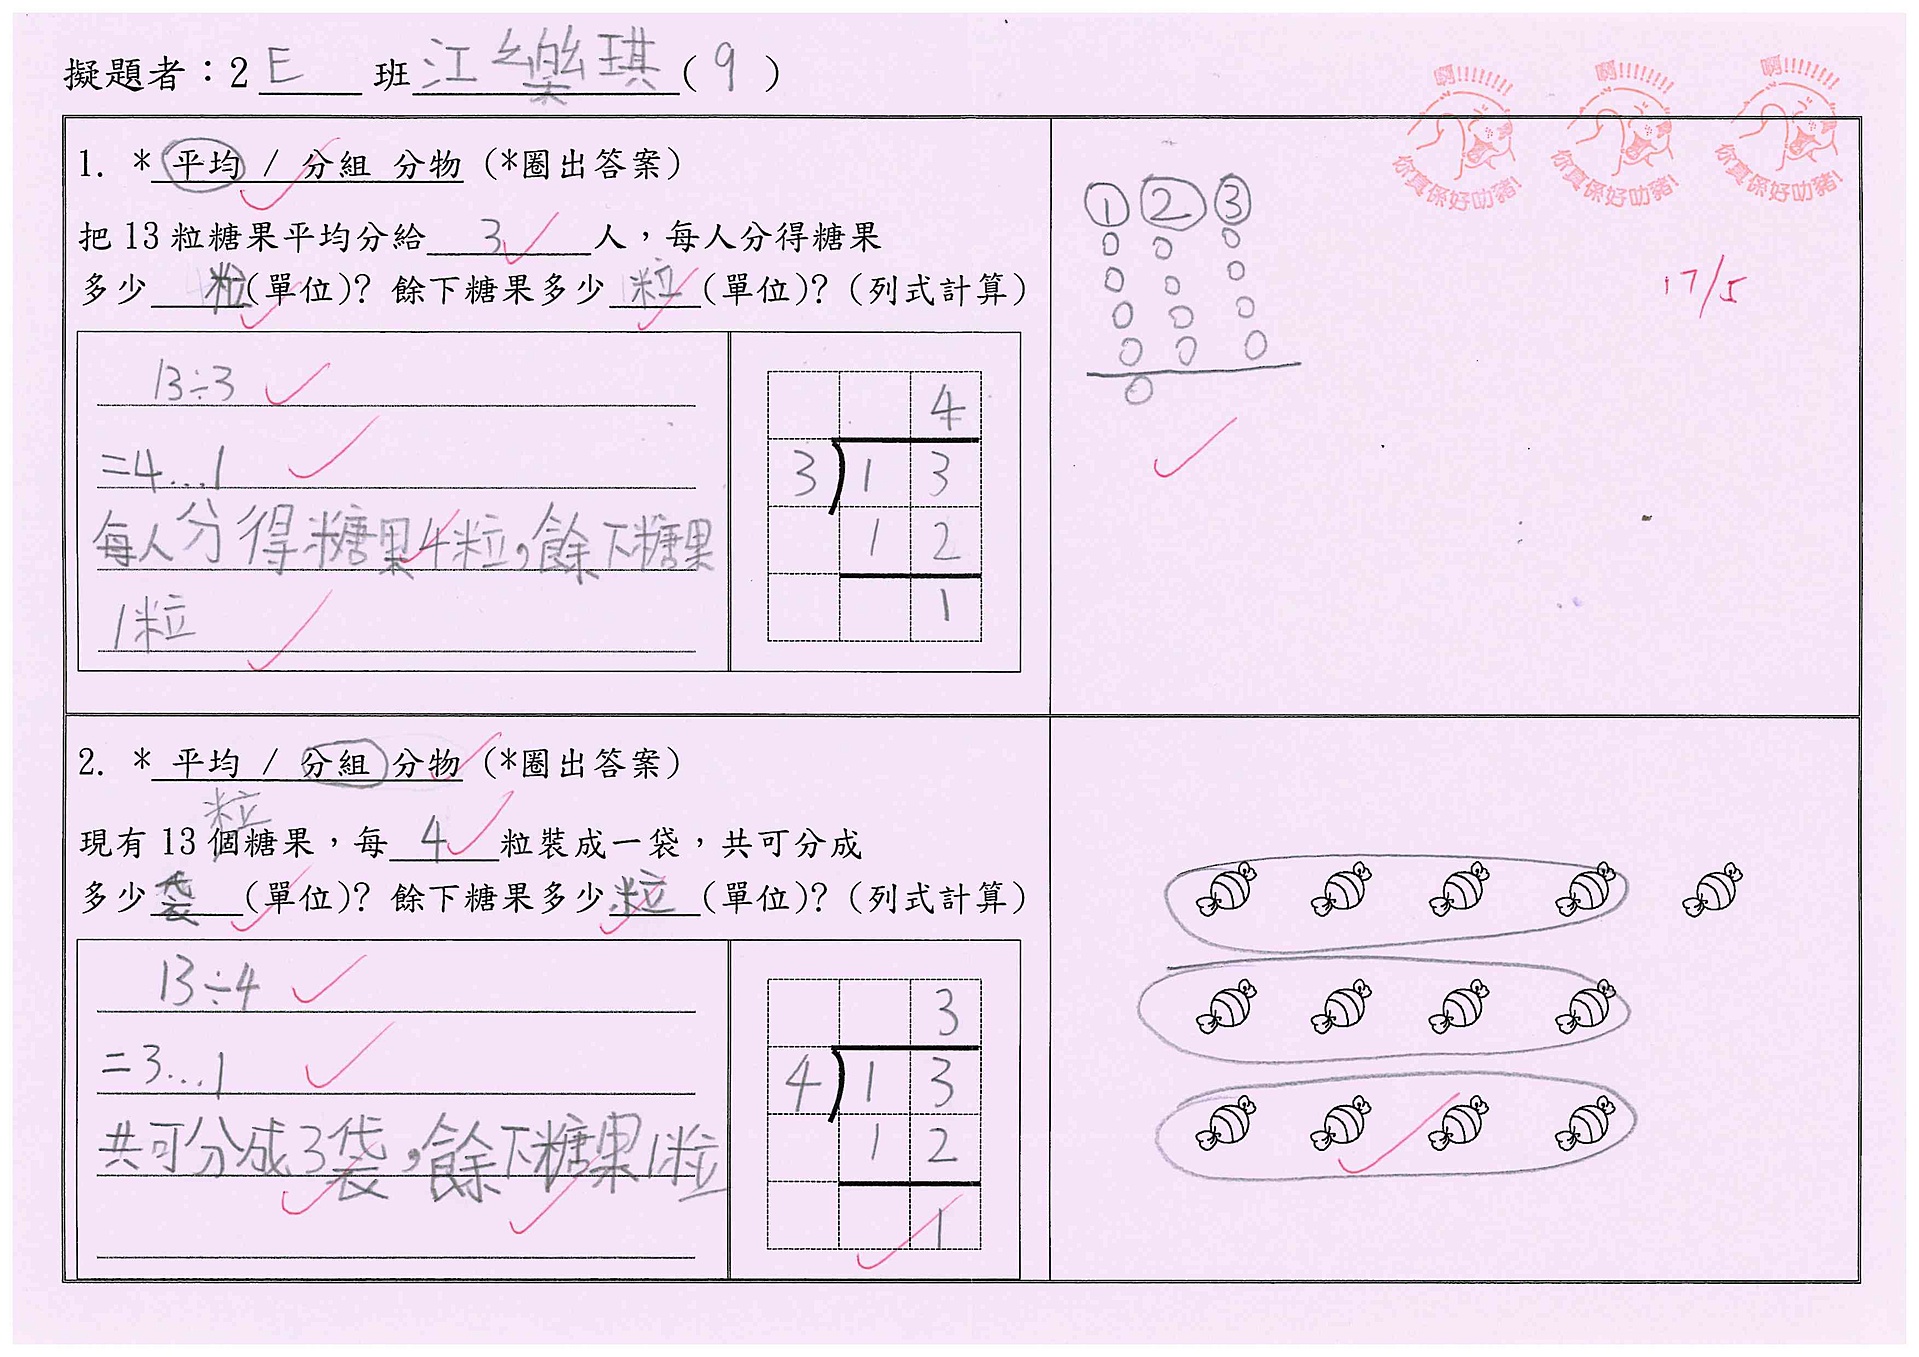 擬題者：2 E 班 江樂琪 ( 9 )
啊!!!!!!!! 你真係好叻豬!
啊!!!!!!!! 你真係好叻豬!
啊!!!!!!!! 你真係好叻豬!
1. * 平均 / 分組 分物 (*圈出答案)
把 13 粒糖果平均分給 3 人，每人分得糖果
多少 粒 (單位)? 餘下糖果多少 粒 (單位)? (列式計算)
13÷3
=4...1
每人分得糖果4粒，餘下糖果
1粒
4
3 1 3
1 2
1
1 2 3
17/5
2. * 平均 / 分組 分物 (*圈出答案)
粒
現有 13 個糖果，每 4 粒裝成一袋，共可分成
多少 袋 (單位)? 餘下糖果多少 粒 (單位)? (列式計算)
13÷4
=3...1
共可分成3袋，餘下糖果1粒
3
4 1 3
1 2
1